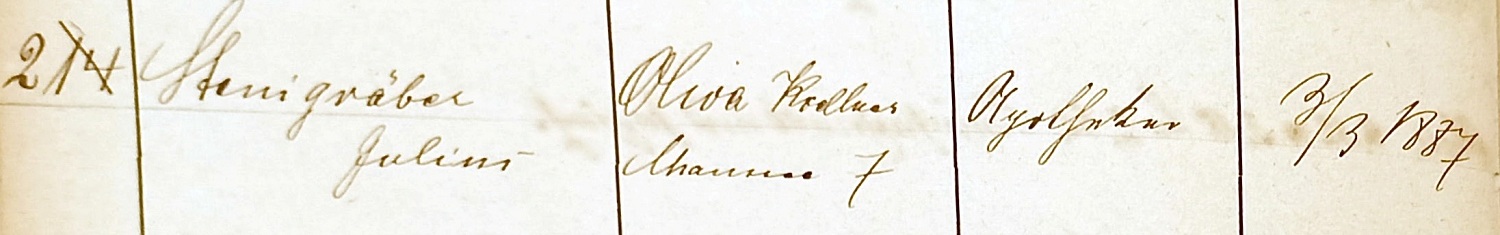 214 Steingräber Oliva Koellner Apotheker 3/3 1887
Julius Chaussee 7